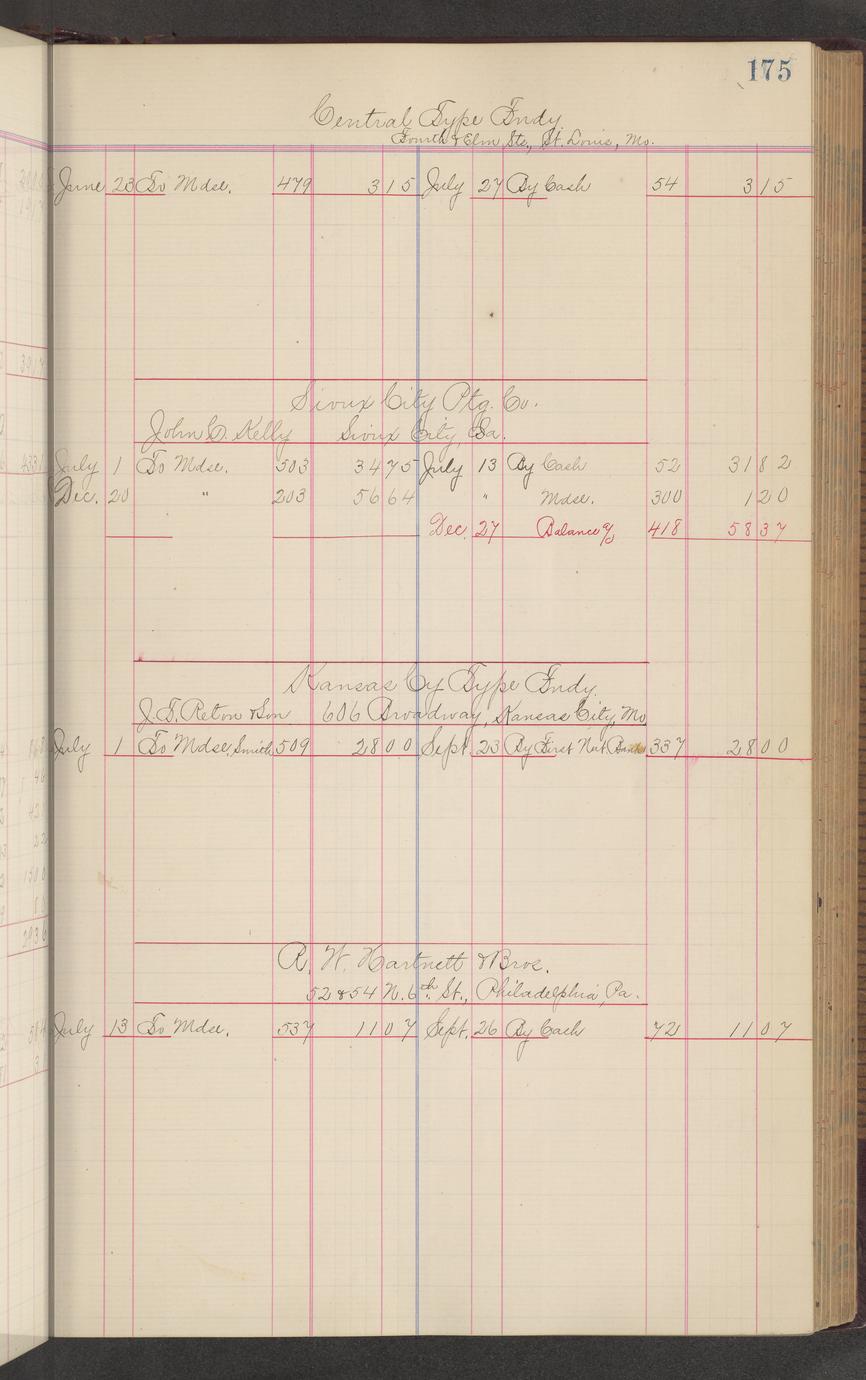 175
Central Type Fndy.
Fourth & Elm Sts., St. Louis, Mo.
June 23 To Mdse. 479 3 15 July 27 By Cash 54 3 15
Sioux City Ptg. Co.
John C. Kelly Sioux City, Ia.
July 1 To Mdse. 503 34 75 July 13 By Cash 52 31 82
Dec. 20 " 203 56 64 " Mdse. 300 1 20
Dec. 27 Balance a/c 418 58 37
Kansas Cy Type Fndy.
J. T. Reton & Son 606 Broadway, Kansas City, Mo
July 1 To Mdse. Smith 509 28 00 Sept. 23 By First Nat Bank 337 28 00
R. W. Hartnett & Bros.
52 & 54 N. 6th St., Philadelphia, Pa.
July 13 To Mdse. 537 11 07 Sept. 26 By Cash 72 11 07